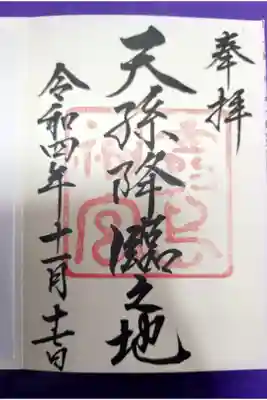 奉拝
天孫降臨之地
令和四年 十一月 日
霧島
神宮